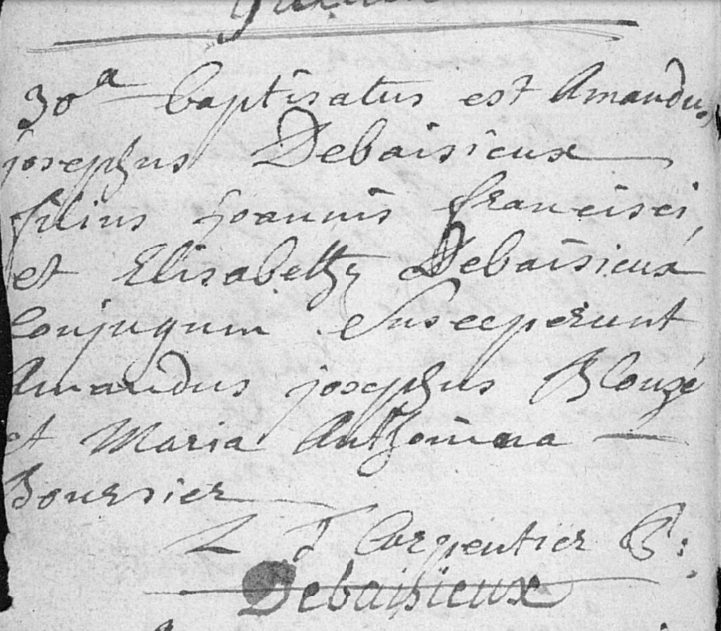 30a baptisatus est Amandus
josephus Debaisieux
filius joannis francisci
et Elisabethæ Debaisieux
Conjugum Susceperunt
Amandus josephus Blouzé
et Maria Anthonina
Boursier
L J Carpentier P:
Debaisieux